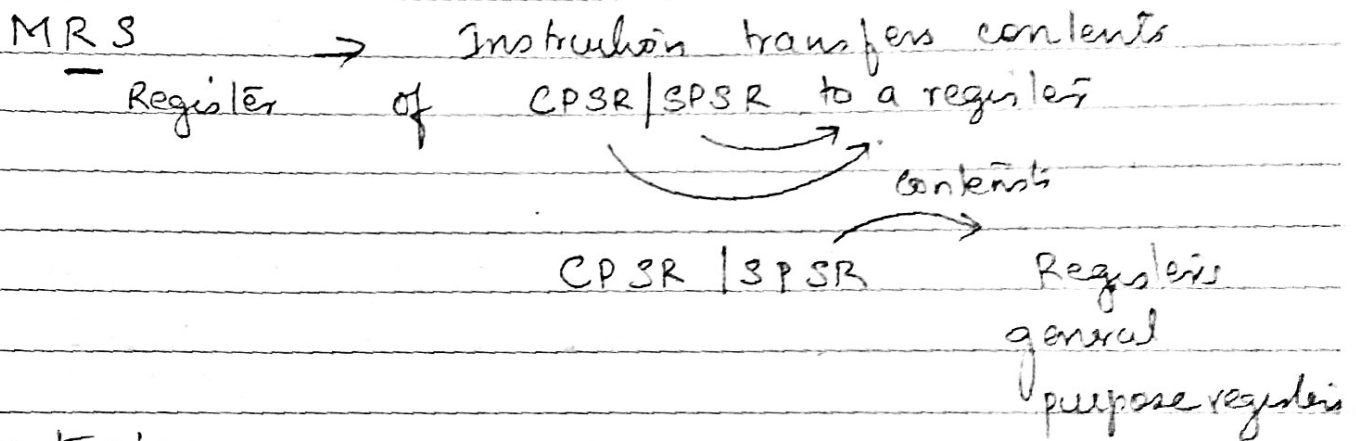 MRS → Instruction transfers contents
Register of CPSR/SPSR to a register
contents
CPSR | SPSR Registers
general
purpose registers